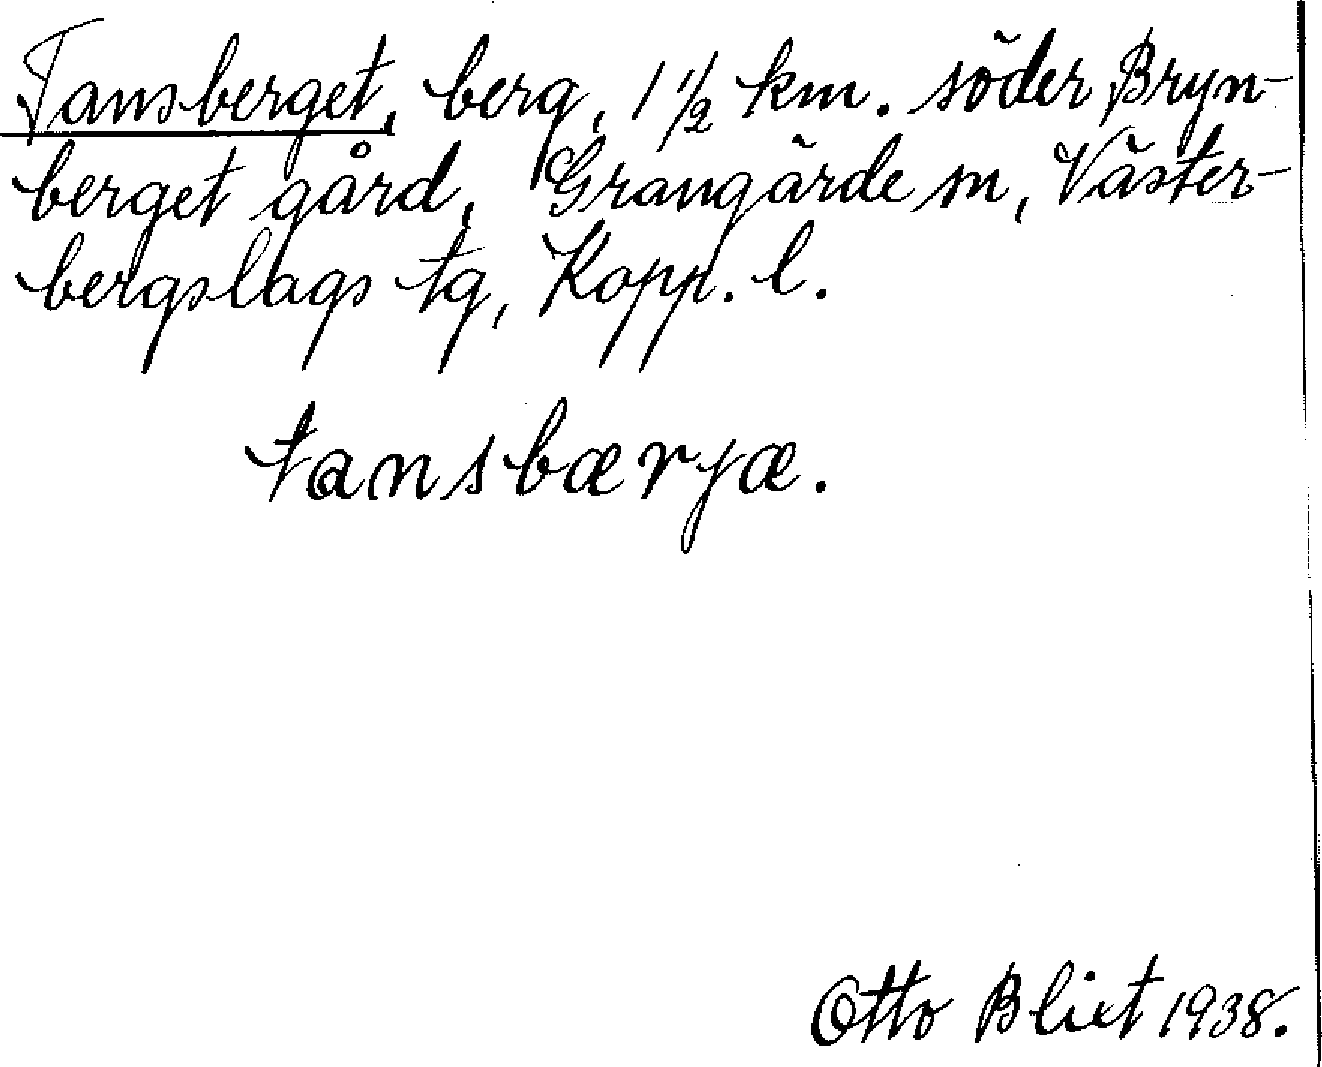 Tansberget, berg, 1 1/2 km. söder Bryn-
berget gård, Grangärde sn, Väster-
bergslags tg, Kopp. l.
tansbærjæ.
Otto Blixt 1938.